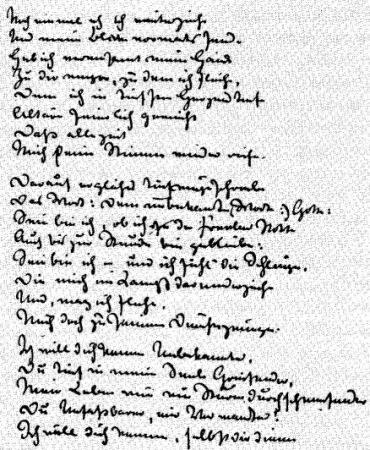 Noch einmal eh ich weiterziehe
Und meine Blicke vorwärts sende
Heb ich vereinsamt meine Hände
Zu dir empor, zu dem ich fliehe,
Dem ich in tiefster Herzenstiefe
Altäre feierlich geweiht
Daß allezeit
Mich deine Stimme wieder riefe.
Darauf erglühet tiefeingeschrieben
Das Wort: Dem unbekannten Gotte:
Sein bin ich, ob ich in der Frevler Rotte
Auch bis zur Stunde bin geblieben:
Sein bin ich – und ich fühl' die Schlingen,
Die mich im Kampf darniederziehn
Und, mag ich fliehn,
Mich doch zu seinem Dienste zwingen.
Ich will dich kennen Unbekannter,
Du tief in meine Seele Greifender,
Mein Leben wie ein Sturm durchschweifender
Du Unfaßbarer, mir Verwandter!
Ich will dich kennen, selbst dir dienen